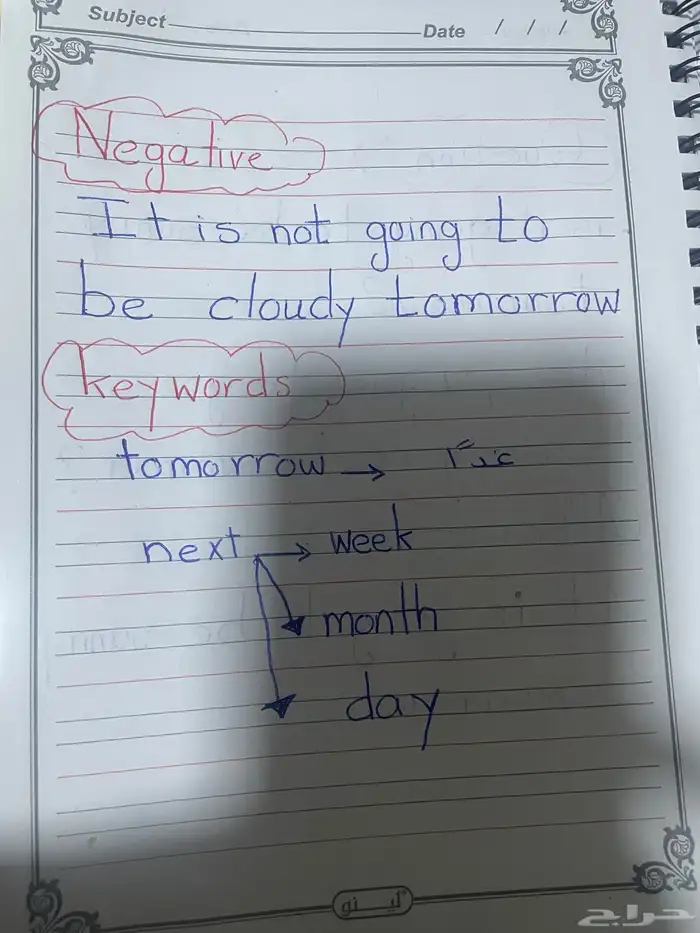 Subject
Date / / /
Negative
It is not going to
be cloudy tomorrow
keywords
tomorrow → غداً
next → week
month
day
حراج